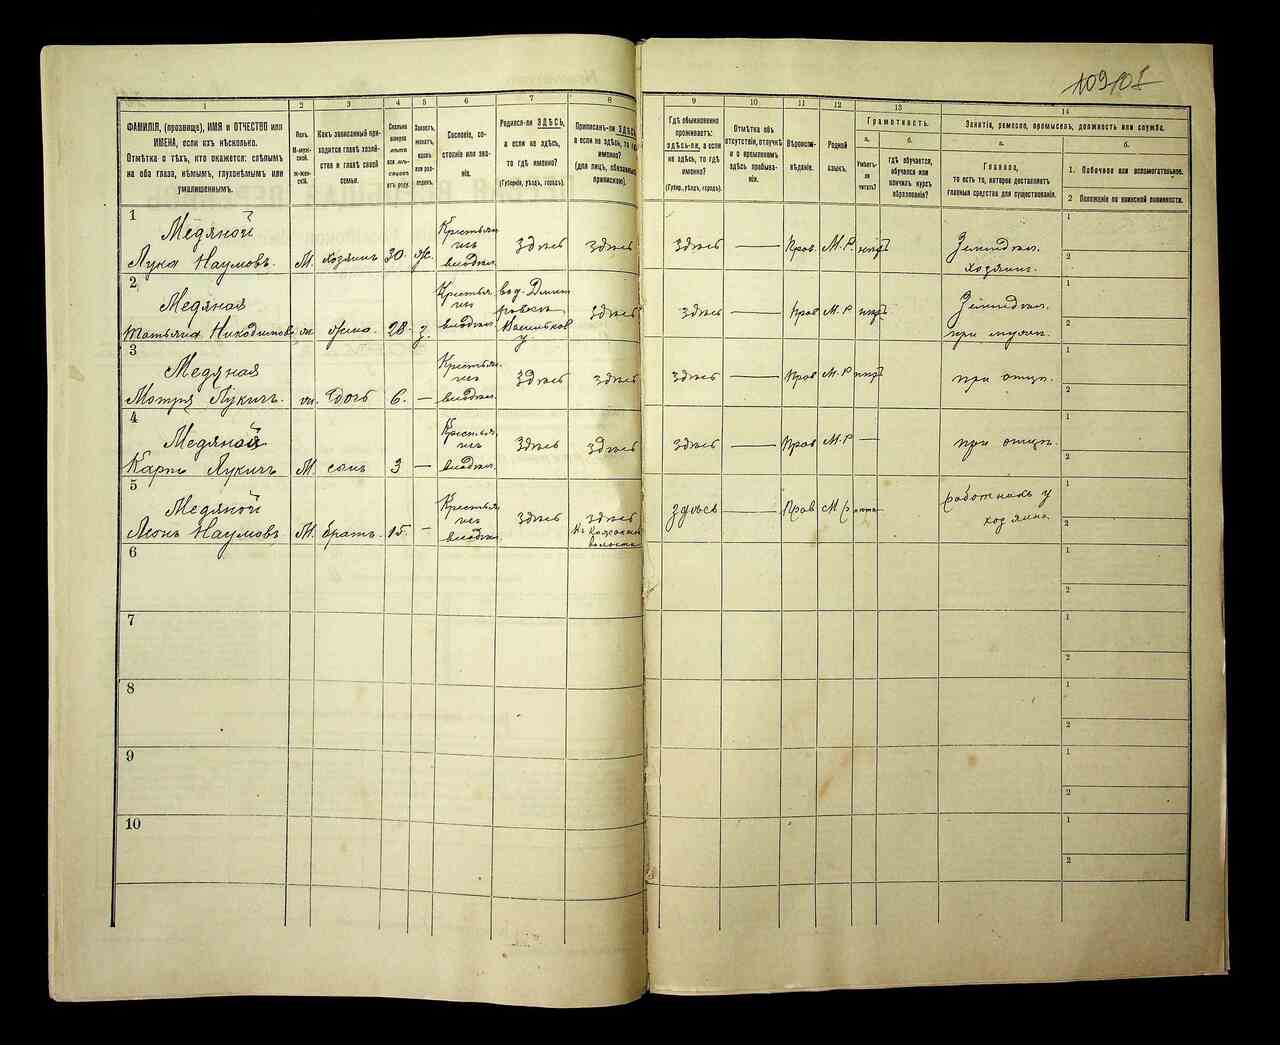 109 105
1
2
3
4
5
6
7
8
ФАМИЛІЯ, (прозвище), ИМЯ и ОТЧЕСТВО или
ИМЕНА, если ихъ нѣсколько.
Отмѣтка о тѣхъ, кто окажется: слѣпымъ
на оба глаза, нѣмымъ, глухонѣмымъ или
умалишеннымъ.
Полъ.
М-муж-
ской.
Ж-жен-
скій.
Какъ записанный при-
ходится главѣ хозяй-
ства и главѣ своей
семьи.
Сколько
минуло
лѣтъ
или мѣ-
сяцевъ
отъ роду.
Холостъ,
женатъ,
вдовъ
или раз-
веденъ.
Сословіе, со-
стояніе или зва-
ніе.
Родился-ли ЗДѢСЬ,
а если не здѣсь,
то гдѣ именно?
(Губернія, уѣздъ, городъ).
Приписанъ-ли ЗДѢСЬ,
а если не здѣсь, то гдѣ
именно?
(для лицъ, обязанныхъ
припискою).
9
10
11
12
13
14
Гдѣ обыкновенно
проживаетъ:
здѣсь-ли, а если
не здѣсь, то гдѣ
именно?
(Губер., уѣздъ, городъ).
Отмѣтка объ
отсутствіи, отлучкѣ
и о временномъ
здѣсь пребыва-
ніи.
Вѣроиспо-
вѣданіе.
Родной
языкъ.
Грамотность.
а.
б.
Умѣетъ-
ли
читать?
Гдѣ обучается,
обучался или
кончилъ курсъ
образованія?
Занятіе, ремесло, промыселъ, должность или служба.
а.
б.
Главное,
то есть то, которое доставляетъ
главныя средства для существованія.
1. Побочное или вспомогательное.
2 Положеніе по воинской повинности.
1
Медяной
Лука Наумовъ. М. хозяинъ 30. ж. Крестьян здѣсь здѣсь здѣсь — Прав М.Р хозяинъ.
1
2
2
Медяная
Татьяна жена. 28. з. Крестьян здѣсь здѣсь — Прав М.Р
1
2
3
Медяная
Мотря Лукич. дочь 6. — Крестьян. здѣсь здѣсь здѣсь — Прав М.Р при отцѣ.
1
2
4
Медяной
Карпъ Лукичъ М. сынъ 3 — Крестьян. здѣсь здѣсь здѣсь — Прав М.Р — при отцѣ.
1
2
5
Медяной
Леонъ Наумовъ М. братъ. 15. - Крестьян здѣсь здѣсь здѣсь — Прав М.Р работникъ у
хозяина
1
2
6
1
2
7
1
2
8
1
2
9
1
2
10
1
2